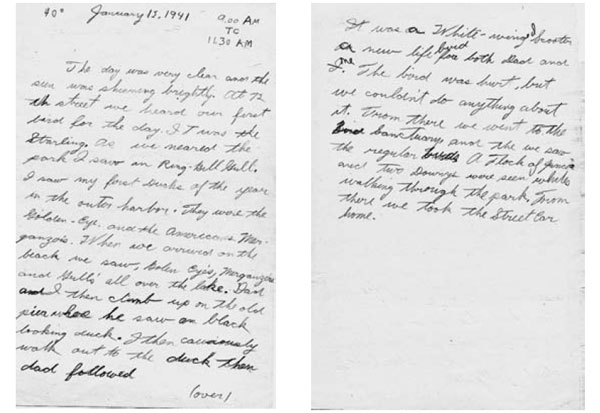 40° January 13, 1941 9.00 AM
TO
11.30 AM
The day was very clear and the
sun was shinning brightly. At 72
th street we heard our first
bird for the day. I.T was the
Starling. As we neared the
park I saw an Ring-Bill Gull.
I saw my first ducks of the year
in the outer harbor. They were the
Golden-Eye, and the American Mer-
ganzois. When we arrived on the
beach we saw, Golen Eye's, Merganzois
and Gull's all over the lake. Dad
and I then climb up on the old
pier where he saw an black
looking duck. I then cauciously
walk out to the duck then
dad followed
(over)
It was a White-wing'd Scooter
a new life bird for both Dad and
I. me The bird was hurt, but
we couldn't do anything about
it. From there we went to the
Bird Sanctuary, and the we saw
the regular birds A Flock of
and two Downys were seen while
walking through the park. From
there we took the Street Car
home.